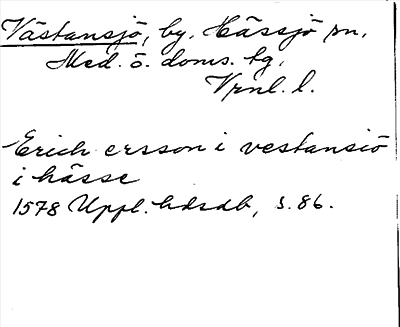 Västansjö, by, Hässjö sn,
Med. ö. doms. tg,
Vrnl. l.
Erich ersson i vestansiö
i hässe
1578 Uppl. hdsdb, s. 86.